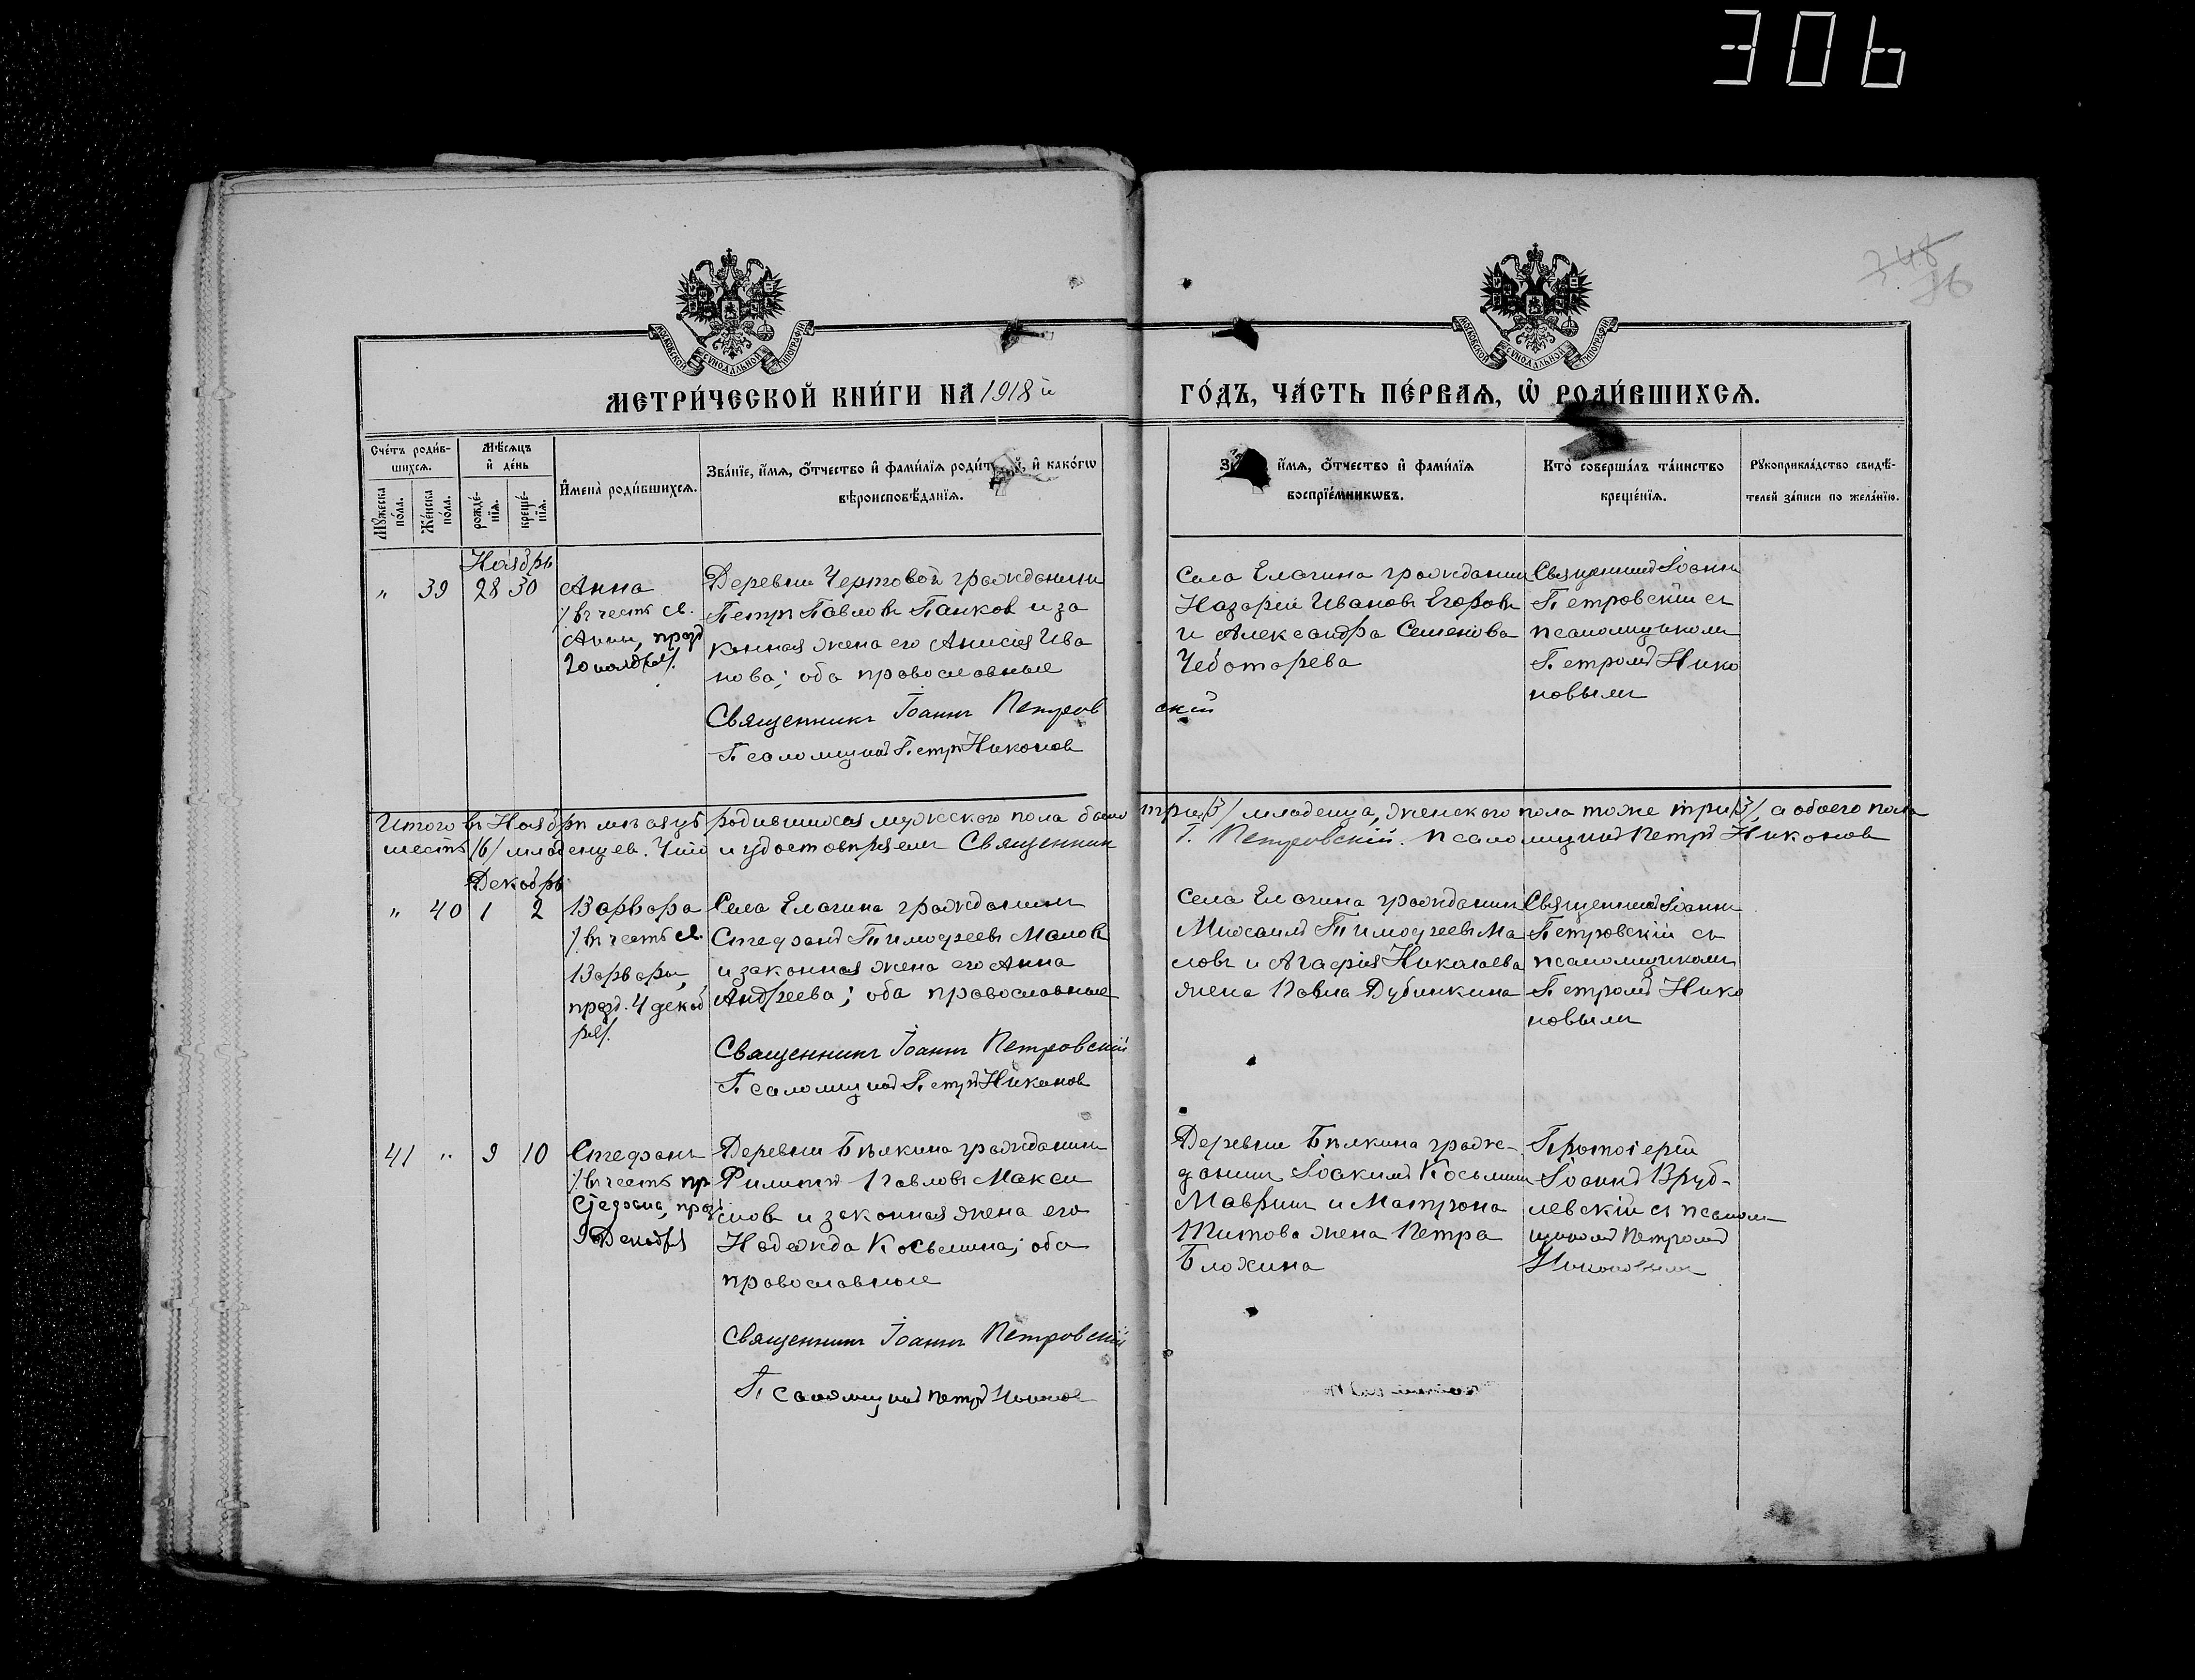 306
348
36
МОСКОВСКОЙ СѴНОДАЛЬНОЙ ТИПОГРАФІИ
МОСКОВСКОЙ СѴНОДАЛЬНОЙ ТИПОГРАФІИ
МЕТРИ́ЧЕСКОЙ КНИ́ГИ НА 1918 й
ГО́ДЪ, ЧА́СТЬ ПЕ́РВАѦ, Ѡ РОДИ́ВШИХСѦ.
Сче́тъ роди́в-
шихсѧ.
Мꙋ́жеска по́ла.
Же́нска по́ла.
Мѣ́сѧцъ
и҆ де́нь
рожде́-
нїѧ.
креще́-
нїѧ.
И҆мена̀ роди́вшихсѧ.
Зва́нїе, и҆́мѧ, ѻ҆́тчество и҆ фами́лїѧ роди́т й, и҆ како́гѡ
вѣроисповѣ́данїѧ.
З и҆́мѧ, ѻ҆́тчество и҆ фами́лїѧ
воспрїе́мникѡвъ.
Кто̀ соверша́лъ та́инство
креще́нїѧ.
Рꙋкоприкла́дство свидѣ́-
телей за́писи по жела́нїю.
Ноябрь
" 39 28 30
Анна
/въ честь св.
Анны, празд
20 ноября/.
Деревни Чертовой гражданинъ
Петръ Павловъ Панковъ и за
конная жена его Анисія Ива
нова; оба православные
Священникъ Іоаннъ Петров
скій
Псаломщикъ Петръ Никонов
Села Елагина гражданинъ
Назарій Ивановъ Егоровъ
и Александра Семенова
Чеботарева
Священникъ Іоаннъ
Петровскій съ
псаломщикомъ
Петромъ Нико
новымъ
Итого въ Ноябрѣ мѣсяцѣ родившихся мужского пола было три/3/ младенца, женского пола тоже три/3/, а обоего пола
шесть /6/ младенцев. Что и удостовѣряемъ Священник І. Петровскій. Псаломщикъ Петръ Никонов
Декабрь
" 40 1 2
Варвара
/въ честь св.
Варвары,
празд. 4 декаб
ря/.
Села Елагина гражданинъ
Стефанъ Тимофеевъ Маслов
и законная жена его Анна
Андреева; оба православные
Священникъ Іоаннъ Петровскій
Псаломщикъ Петръ Никонов
Села Елагина гражданинъ
Мисаилъ Тимофеевъ Ма
словъ и Агафія Николаева
жена Павла Дубинкина
Священникъ Іоаннъ
Петровскій съ
псаломщикомъ
Петромъ Нико
новымъ
41 " 9 10
Стефанъ
/въ честь пр
Стефана, празд
9 Декабря
Деревни Бѣлкина гражданинъ
Филиппъ Павловъ Макси
мовъ и законная жена его
Надежда Косьмина; оба
православные
Священникъ Іоаннъ Петровскій
Псаломщикъ Петръ Никонов
Деревни Бѣлкина граж-
данинъ Іоакимъ Косьминъ
Мавринъ и Матрона
Титова жена Петра
Блохина
Протоіерей
Іоаннъ Вруб-
левскій съ псалом-
щикомъ Петромъ
Никоновымъ